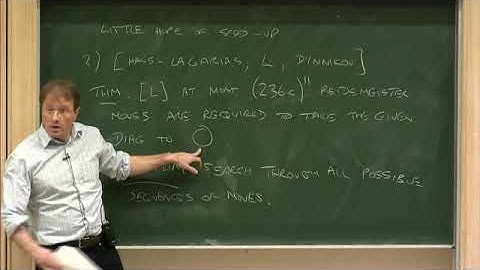 LITTLE HOPE OF SPEED-UP
2) [HASS-LAGARIAS, L, DYNNIKOV]
THM. [L] AT MOST (236c)^11 REIDEMEISTER
MOVES ARE REQUIRED TO TAKE THE GIVEN
DIAG TO ○
SEARCH THROUGH ALL POSSIBLE
SEQUENCES OF MOVES.